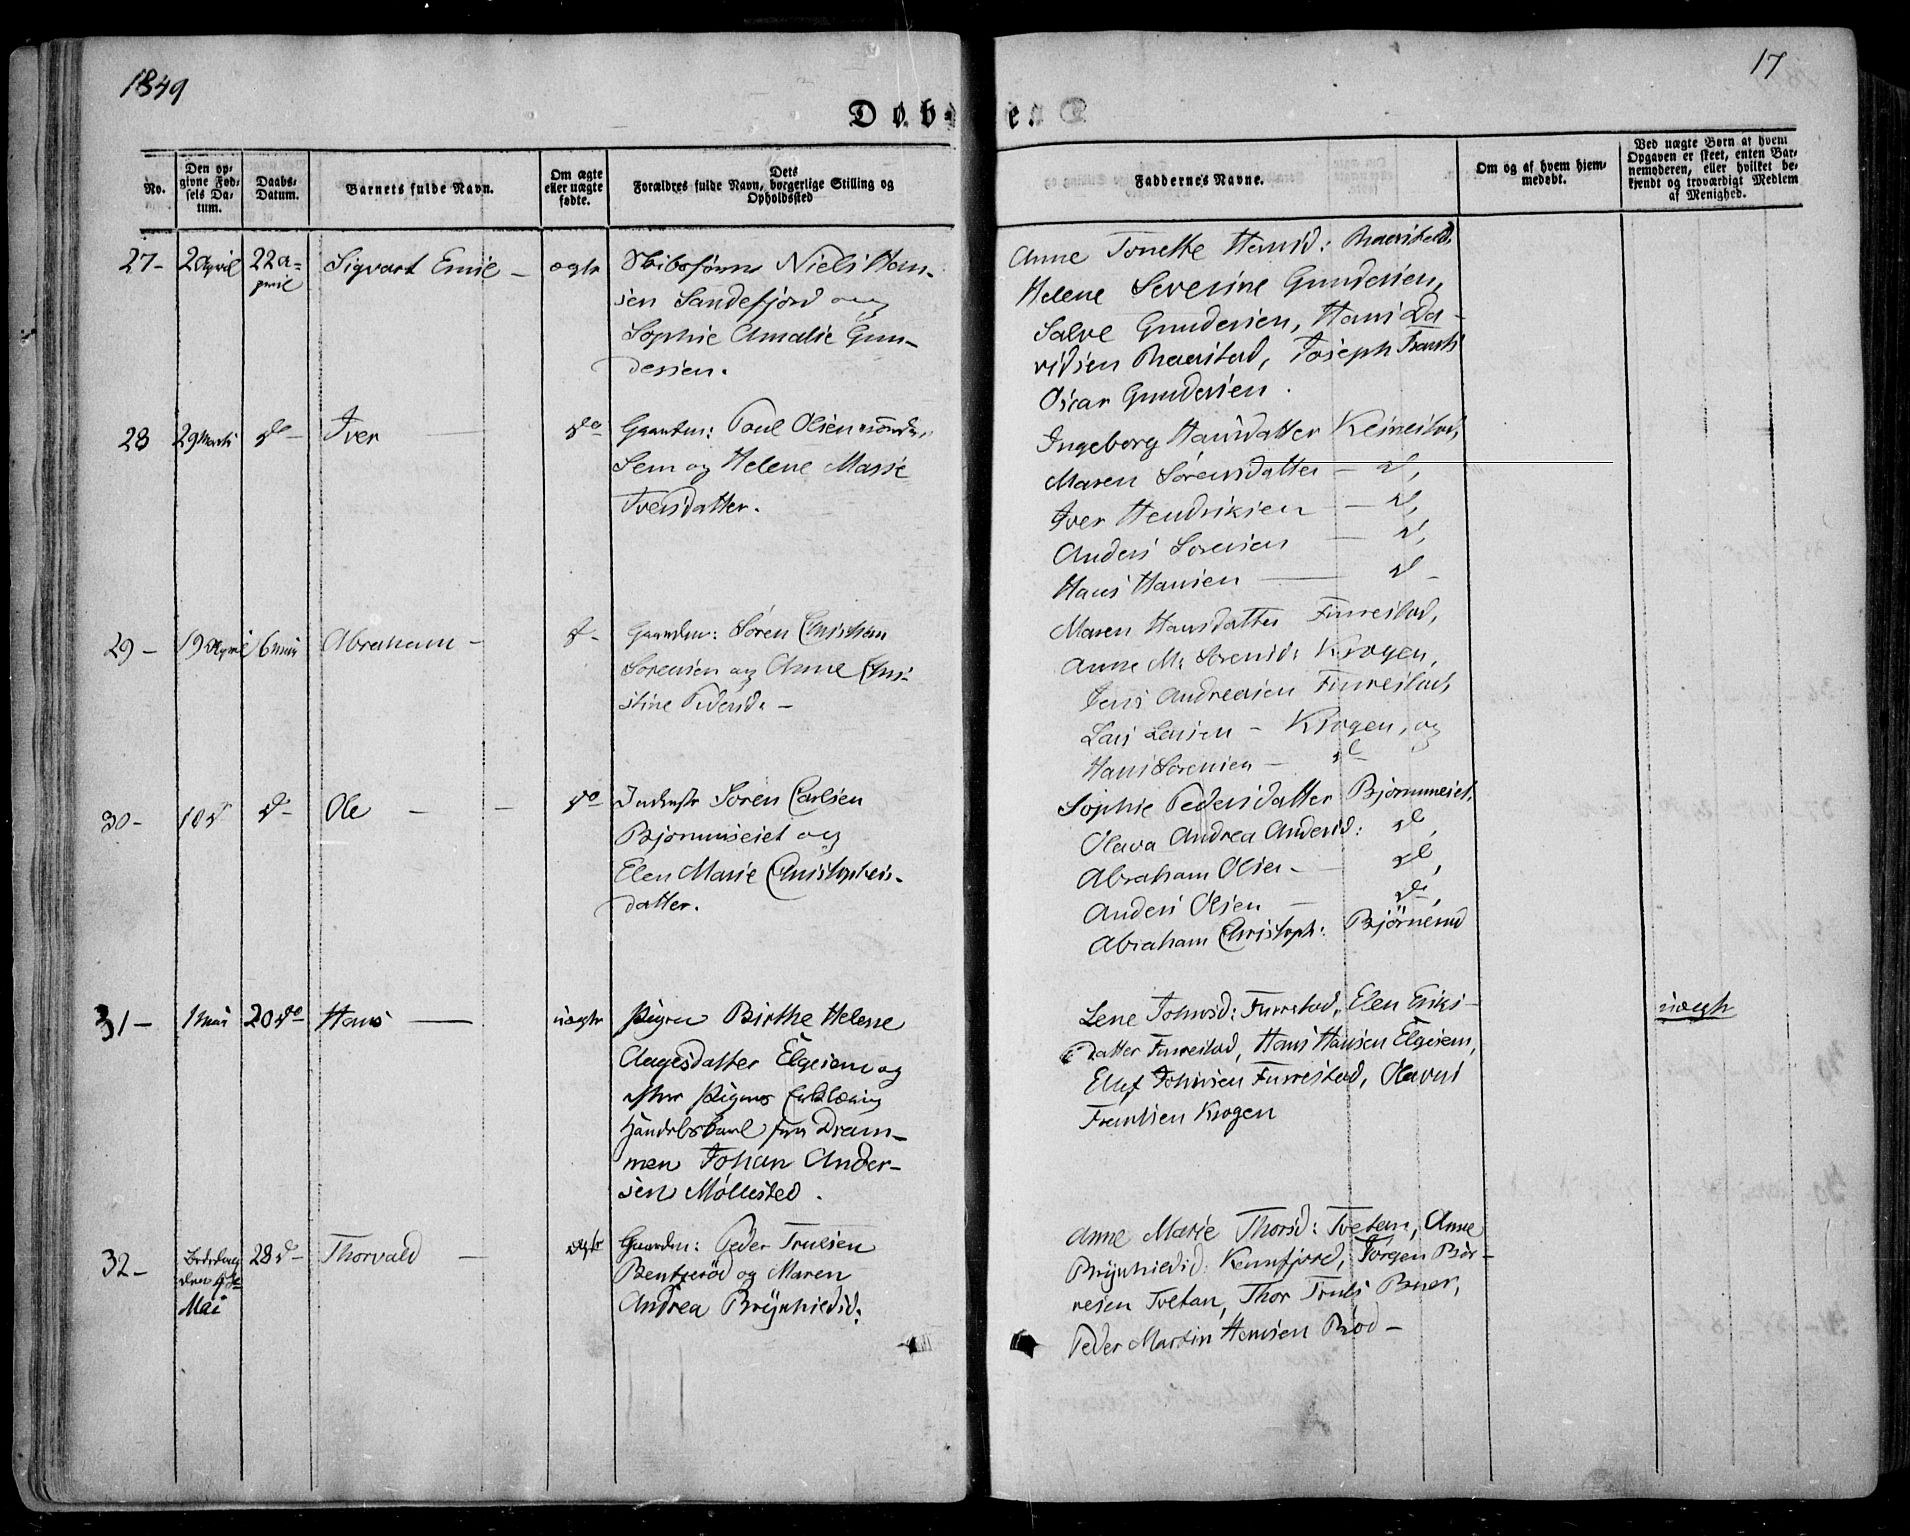 1849
17
Døbte.
No.
Den opgivne Fødsels Datum.
Daabs-Datum.
Barnets fulde Navn.
Om ægte eller uægte fødte.
Dets Forældres fulde Navn, borgerlige Stilling og Opholdssted
Faddernes Navne.
Om og af hvem hjemmedøbt.
Ved uægte Børn at hvem Opgaven er skeet, enten Barnemoderen, eller hvilket bekjendt og troværdigt Medlem af Menighed.
27-
2 April
22 April
Sigvart Emil -
ægte
Niels Han-
sen Sandefjord og
Sophie Amalie Gun-
dersen.
Anne Tonette Hansd:
Helene Severine Gundersen,
Salve Gundersen, Hans Da-
vidsen Joseph
Oscar Gundersen.
28
29 Marts
do -
Iver
do
Gaardm: Poul Olsen
Sem og Helene Marie
Iversdatter.
Ingeborg Hansdatter
Maren Sørensdatter - d,
Iver Hendriksen - d,
Anders Sørensen - d,
Hans Hansen - d -
29 -
19 April
6 Mai
Abraham -
d -
Gaardm: Søren Christian
Sørensen og Anne Chri-
stine Pedersd: -
Maren Hansdatter Furrestad,
Anne M: Sørensd: Krogen,
Jens Andreasen Furrestad,
Lars Larsen - Krogen, og
Hans Sørensen - do
30 -
18 d
do -
Ole -
do
Inderst Søren Carlsen
Bjørnumeiet og
Elen Marie Christophers-
datter.
Sophie Pedersdatter Bjørnumeiet,
Olava Andrea Andersd: do,
Abraham Olsen - do,
Anders Olsen - do,
Abraham Christoph: Bjørnum
31 -
1 Mai
20 do -
Hans -
uægte
Pigen Birthe Helene
Aagesdatter Elgesem og
efter Pigens Erklæring
Handelskarl fra Dram-
men Johan Ander-
sen Møllested.
Lene Johnsd: Furrestad, Elen Eriks-
datter Furrestad, Hans Hansen Elgesem,
Eluf Johnsen Furrestad, Olavus
Frantsen Krogen
uægte
32 -
Bededag
den 4de
Mai
28 d -
Thorvald -
ægte
Gaardm: Peder Trulsen
Bentserød og Maren
Andrea Brynhieldsd:
Anne Marie Thorsd: Tveten, Anne
Brynhieldsd: Kamfjord, Jørgen Bør-
resen Tveten, Thor Truls
Peder Martin Hansen Rød -